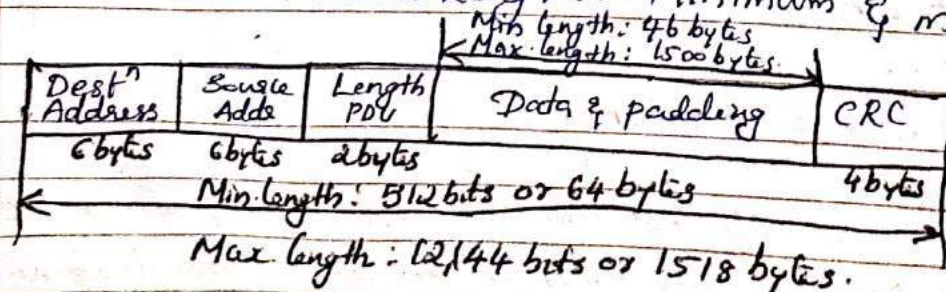 Minimum & m
Min length: 46 bytes
Max. length: 1500 bytes.
Destⁿ Address
Source Adds
Length PDU
Data & padding
CRC
6 bytes 6 bytes 2 bytes 4 bytes
Min. length: 512 bits or 64 bytes
Max length: 12,144 bits or 1518 bytes.